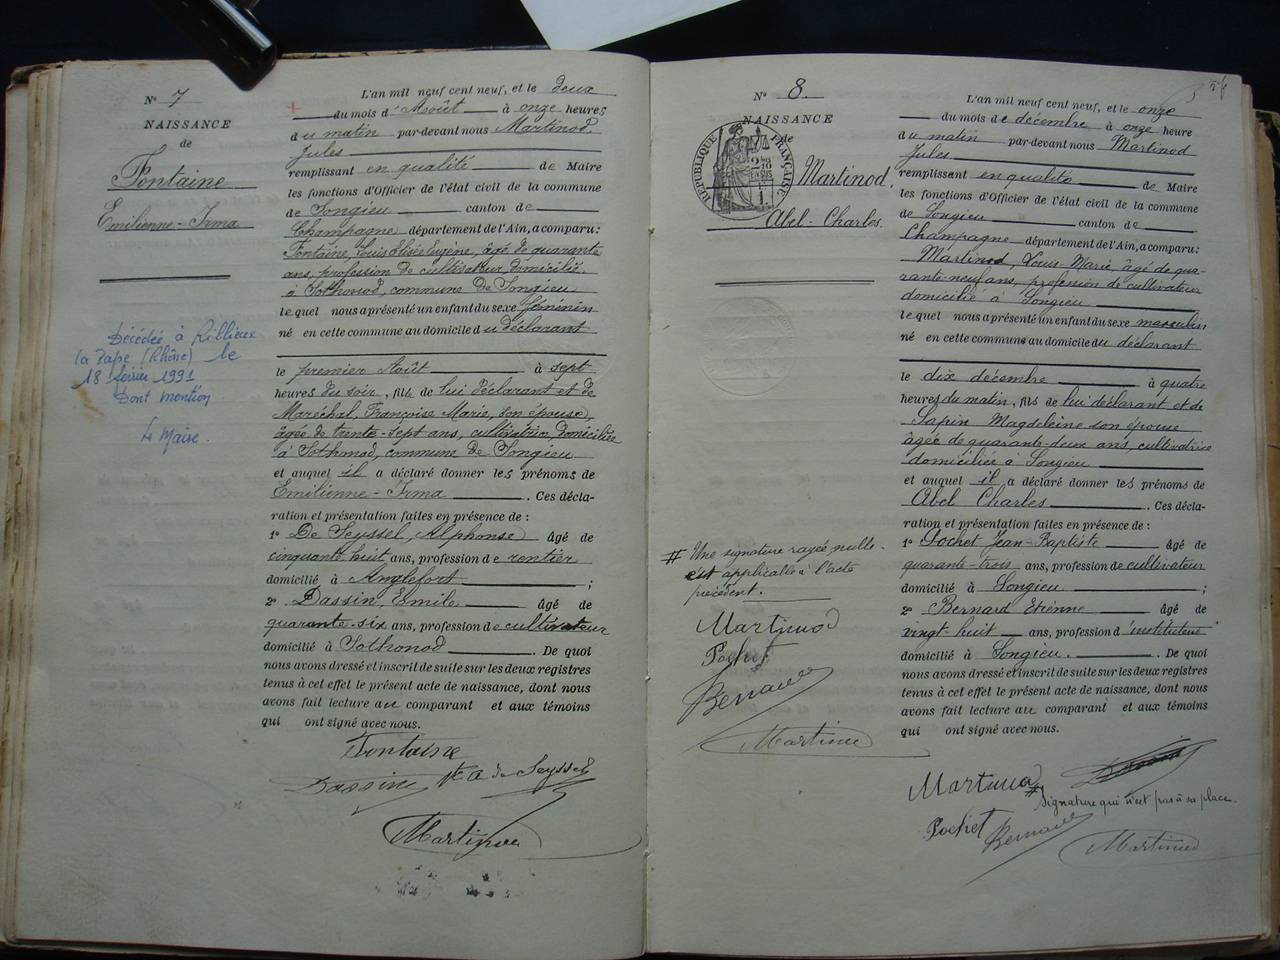 Nº 7
NAISSANCE
de
Fontaine
Emilienne-Irma
Décédée à Rillieux
la Pape (Rhône) le
18 février 1991
Dont mention
Le Maire.
L'an mil neuf cent neuf, et le deux
du mois d'Août à onze heures
du matin par-devant nous Martinod
Jules
remplissant en qualité de Maire
les fonctions d'Officier de l'état civil de la commune
de Songieu canton de
Champagne département de l'Ain, a comparu:
Fontaine, Louis Elisée Eugène, âgé de quarante
ans, profession de cultivateur, domicilié
à Sothonod, commune de Songieu
lequel nous a présenté un enfant du sexe féminin
né en cette commune au domicile du déclarant
le premier Août à sept
heures du soir, fils de lui déclarant et de
Maréchal, Françoise Marie, son épouse,
âgée de trente-sept ans, cultivatrice, domiciliée
à Sothonod, commune de Songieu
et auquel il a déclaré donner les prénoms de
Emilienne-Irma. Ces décla-
ration et présentation faites en présence de :
1º De Seyssel, Alphonse âgé de
cinquante huit ans, profession de rentier
domicilié à Anglefort ;
2º Dassin, Emile âgé de
quarante-six ans, profession de cultivateur
domicilié à Sothonod. De quoi
nous avons dressé et inscrit de suite sur les deux registres
tenus à cet effet le présent acte de naissance, dont nous
avons fait lecture au comparant et aux témoins
qui ont signé avec nous.
Fontaine
Dassin A de Seyssel
Martinod
Nº 8.
NAISSANCE
de
RÉPUBLIQUE FRANÇAISE
Martinod,
Abel-Charles.
# Une signature rayée nulle.
est applicable à l'acte
précédent.
Martinod
Pochet
Bernard
Martinod
L'an mil neuf cent neuf, et le onze
du mois de décembre à onze heure
du matin par-devant nous Martinod
Jules
remplissant en qualité de Maire
les fonctions d'Officier de l'état civil de la commune
de Songieu canton de
Champagne département de l'Ain, a comparu:
Martinod, Louis-Marie, âgé de qua-
rante-neuf ans, profession de cultivateur
domicilié à Songieu
lequel nous a présenté un enfant du sexe masculin
né en cette commune au domicile du déclarant
le dix décembre à quatre
heures du matin, fils de lui déclarant et de
Sapin Magdeleine son épouse
âgée de quarante-deux ans, cultivatrice
domiciliée à Songieu
et auquel il a déclaré donner les prénoms de
Abel Charles. Ces décla-
ration et présentation faites en présence de :
1º Pochet Jean-Baptiste âgé de
quarante-trois ans, profession de cultivateur
domicilié à Songieu ;
2º Bernard Etienne âgé de
vingt-huit ans, profession d'instituteur
domicilié à Songieu. De quoi
nous avons dressé et inscrit de suite sur les deux registres
tenus à cet effet le présent acte de naissance, dont nous
avons fait lecture au comparant et aux témoins
qui ont signé avec nous.
Martinod
# Signature qui n'est pas à sa place.
Pochet Bernard Martinod